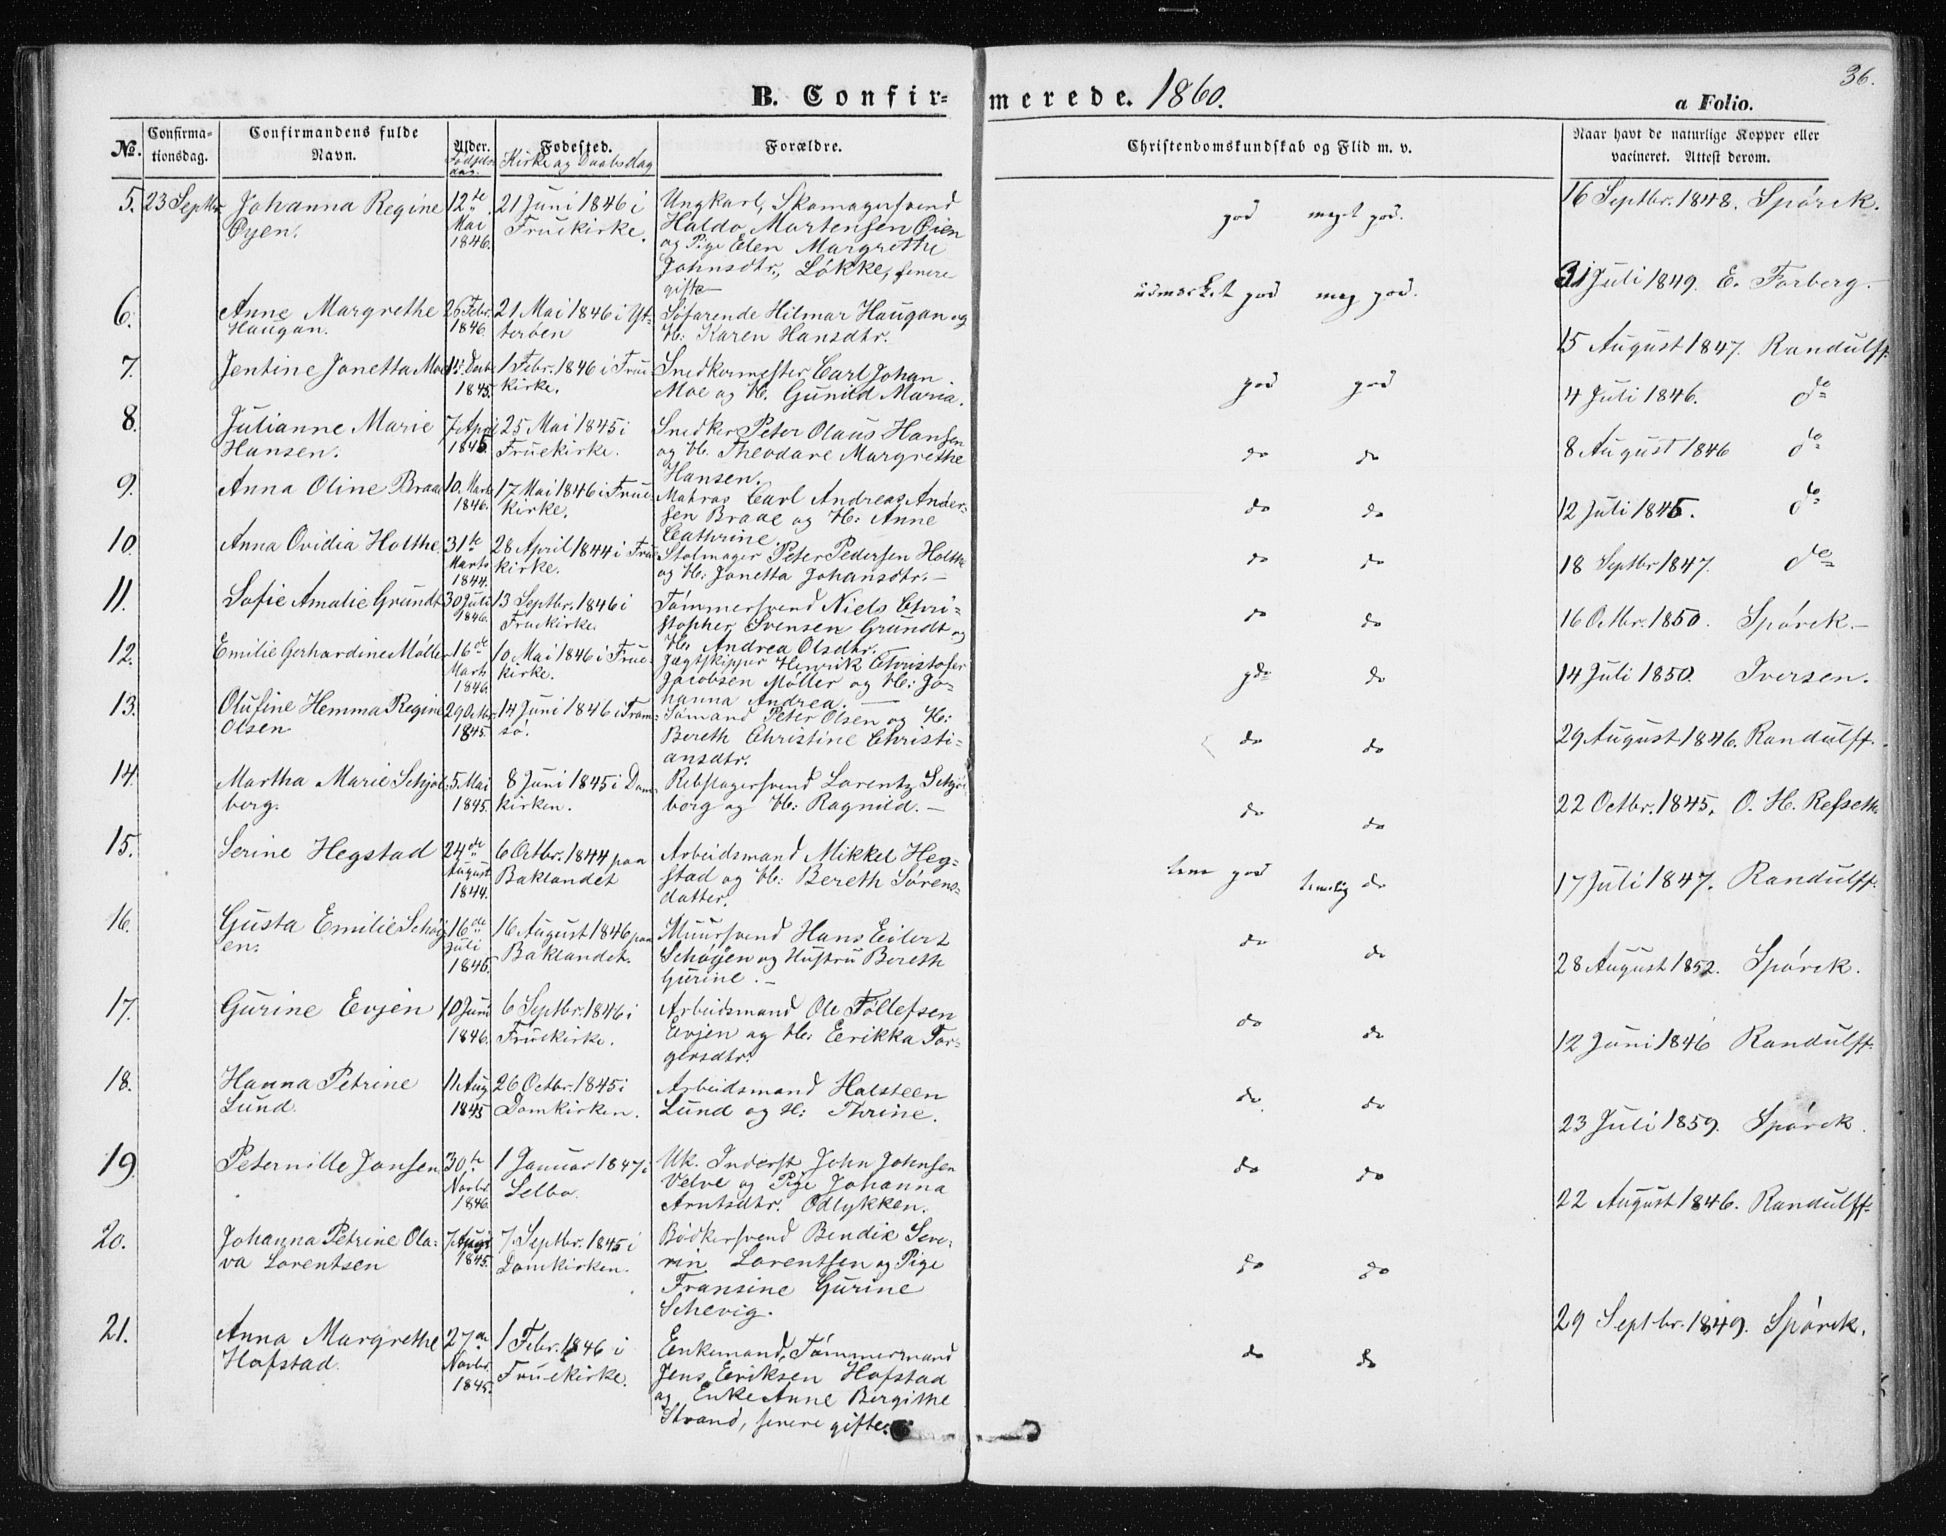 36.
B. Confirmerede. 1860.
a Folio.
No. Confirmationsdag. Confirmandens fulde Navn. Alder. Fødselsdag. Fødested. Kirke og Daabsdag Forældre. Christendomskundskab og Flid m. v. Naar havt de naturlige Kopper eller vacineret. Attest derom.
5. 23 Septbr. Johanna Regine 12te 21 Juni 1846 i Ungkarl, Skomagersvend god meget god. 16 Septbr. 1848. Spørck.
Øyen. Mai Fruekirke. Haldo Martensen Øien
1846. og Pige Elen Margrethe
Johnsdtr. Løkke, senere
gifte
6. Anne Margrethe 26 Febr. 21 Mai 1846 i Yt- Søfarende Hilmar Haugan og udmærket god meg god. 31 Juli 1849. E. Forberg.
Haugan. 1846. terøen H: Karen Hansdtr.
7. Jentine Jonetta Moe 1 Febr. 1846 i Frue Snedkermester Carl Johan god god 15 August 1847. Randulff
1845. kirke. Moe og H. Gunild Maria.
8. Julianne Marie 7 April 25 Mai 1845 i Snedker Peter Olaus Hansen do do 4 Juli 1846. do
Hansen. 1845 Fruekirke. og H. Theodare Margrethe
Hansen.
9. Anna Oline Braae 10. Marts 17 Mai 1846 i Frue Matros Carl Andreas Ander- do do 8 August 1846 do
1846. kirke. sen Braae og H: Anne
Cathrine.
10. Anna Ovidia Holthe 31te 28 April 1844 i Frue Stolmager Peter Pedersen Holthe do do 12 Juli 1845. do
Marts kirke. og H: Jonetta Johansdtr. –
1844.
11. Sofie Amalie Grundt 30 Juli 13 Septbr. 1846 i Tømmersvend Niels Chri- do do 18 Septbr 1847. do
1846. Fruekirke. stopher Svensen Grundt og
H: Andrea Olsdtr.
12. Emilie Gerhardine Møller 16de 10 Mai 1846 i Frue- Jægtskipper Henrik Christofer do do 16 Octbr. 1850. Spørck. –
Marts kirke. Jacobsen Møller og H: Jo-
1846. hanna Andrea. –
13. Olufine Hemma Regine 29 Octbr. 14 Juni 1846 i Trom- Sømand Peter Olsen og H: do do 14 Juli 1850. Iversen.
Olsen 1845. sø. Bereth Christine Christi-
ansdtr.
14. Martha Marie Schjøl- 5 Mai 8 Juni 1845 i Dom- Rebslagersvend Lorentz Schjøl do do 29 August 1846. Randulff.
berg. 1845. kirken. berg og H: Ragnild. –
15. Serine Hegstad 24de 6 Octbr. 1844 paa Arbeidsmand Mikkel Heg- god temlig do 22 Octbr. 1845. O. H. Refseth
August Baklandet stad og H: Bereth Sørens-
1844. datter.
16. Gusta Emilie Schøy- 16de 16 August 1846 paa Muursvend Hans Eilert do do 17 Juli 1847. Randulff.
en. Juli Baklandet. Schøyen og Hustru Bereth
1846. Gurine. –
17. Gurine Evjen 10 Juni 6 Septbr. 1846 i Arbeidsmand Ole Tøllefsen do do 28 August 1852. Spørck.
1846. Fruekirke. Evjen og H: Erikka Tor-
gersdtr.
18. Hanna Petrine 11 Aug 26 Octbr. 1845 i Arbeidsmand Halsteen do do 12 Juni 1846 Randulff.
Lund. 1845 Domkirken. Lund og H: Thrine.
19. Peternille Jonsen 30te 1 Januar 1847 i Uk. Inderst John Johnsen do do 23 Juli 1859. Spørck.
Novbr. Selbo. Velve og Pige Johanna
1846. Arntsdtr. Odlykken.
20. Johanna Petrine Ola- 7 August 7 Septbr. 1845 i Bødkersvend Bendie Seve- do do 22 August 1846. Randulff.
va Lorentsen 1845. Domkirken. rin Lorentsen og Pige
Fransine Gurine
Schevig.
21. Anna Margrethe 27de 1 Febr. 1846 i Enkemand, Tømmermand do do 29 Septbr. 1849. Spørck.
Hofstad. Novbr. Fruekirke. Jens Eriksen Hofstad
1845. og Enke Anne Bergithe
Strand, senere gifte.